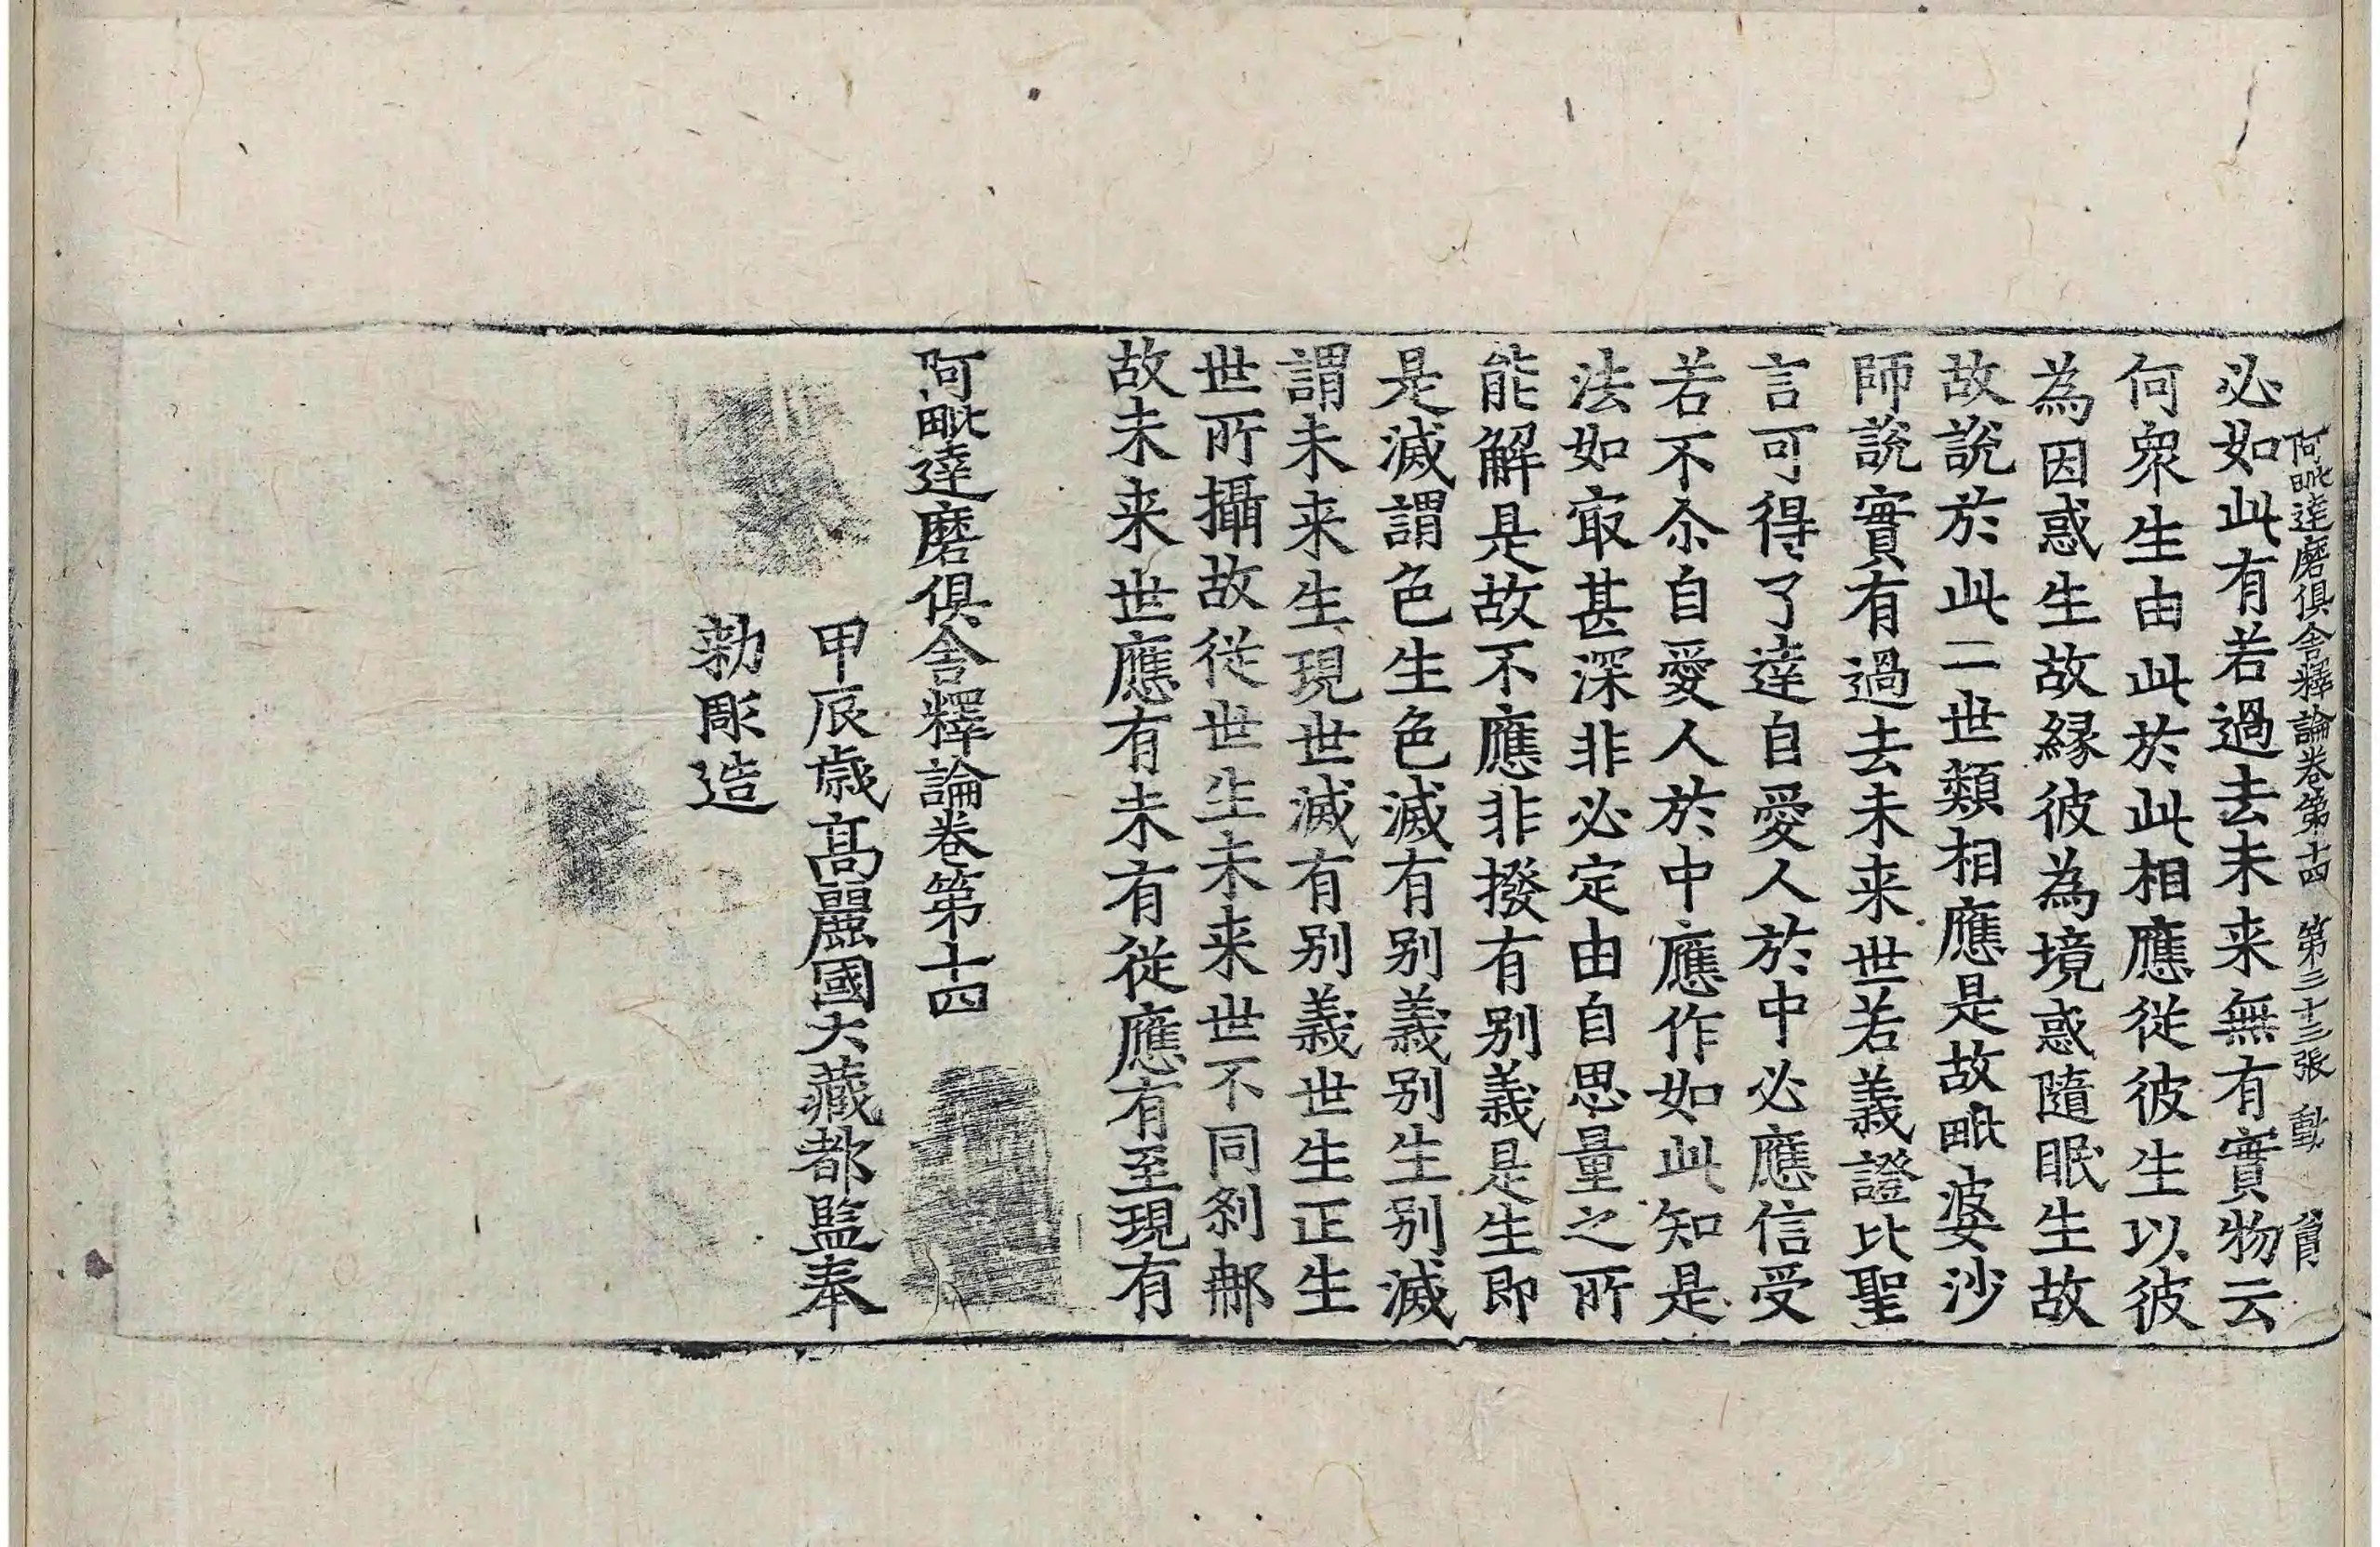 阿毗達磨俱舍釋論卷第十四 第三十三張 動
必如此有若過去未来無有實物云
何衆生由此於此相應從彼生以彼
為因惑生故緣彼為境惑隨眠生故
故說於此二世類相應是故毗婆沙
師說實有過去未来世若義證比聖
言可得了達自愛人於中必應信受
若不尒自愛人於中應作如此知是
法如㝡甚深非必定由自思量之所
能解是故不應非撥有別義是生即
是滅謂色生色滅有別義別生別滅
謂未来生現世滅有別義世生正生
世所攝故從世生未来世不同剎那
故未来世應有未有從應有至現有
阿毗達磨俱舍釋論卷第十四
甲辰歲高麗國大藏都監奉
勅彫造